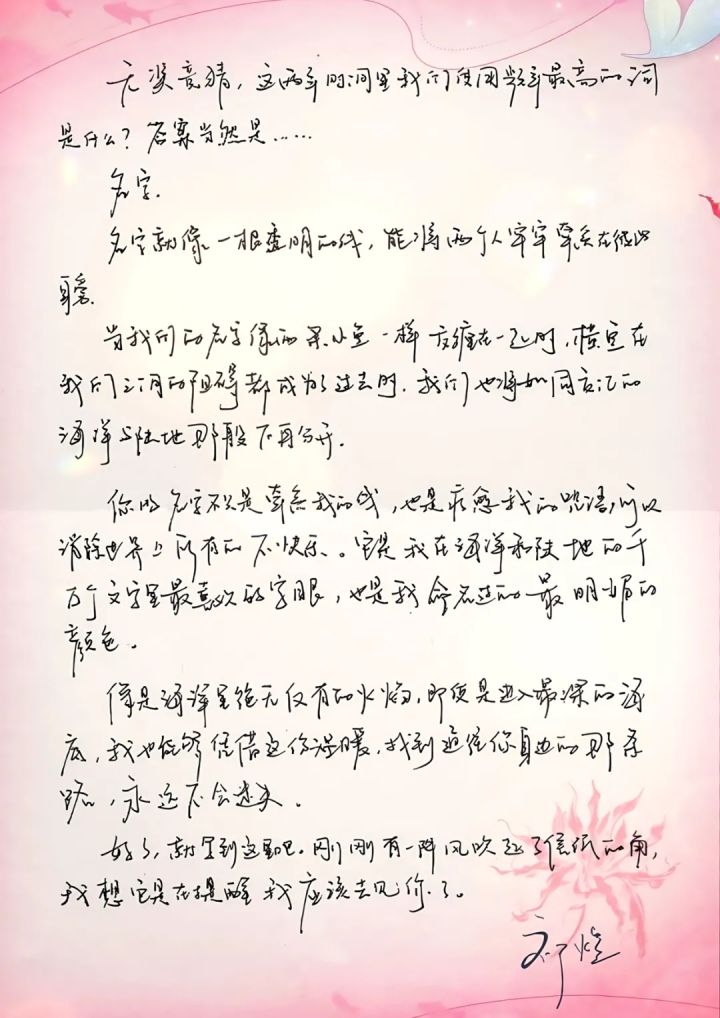 无奖竞猜，这两年时间里我们使用频率最高的词
是什么？答案当然是……
名字.
名字就像一根透明的线，能将两个人牢牢牵系在彼此
身旁.
当我们的名字像两条小鱼一样交缠在一起时，横亘在
我们之间的阻碍都成为了过去时．我们也将如同交汇的
海洋与陆地那般不再分开．
你的名字不只是牵系我的线，也是疗愈我的咒语，可以
消除世界上所有的不快乐。它是我在海洋和陆地的千
万个文字里最喜欢的字眼，也是我命名过的最明媚的
颜色。
像是海洋里绝无仅有的火焰，即使是进入最深的海
底，我也能够凭借这份温暖，找到通往你身边的那条
路，永远不会迷失。
好了，就写到这里吧．刚刚有一阵风吹起了信纸的角，
我想它是在提醒我应该去见你了。
祁煜